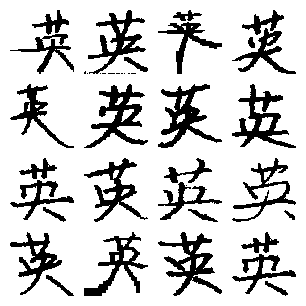 英英英英
英英英英
英英英英
英英英英